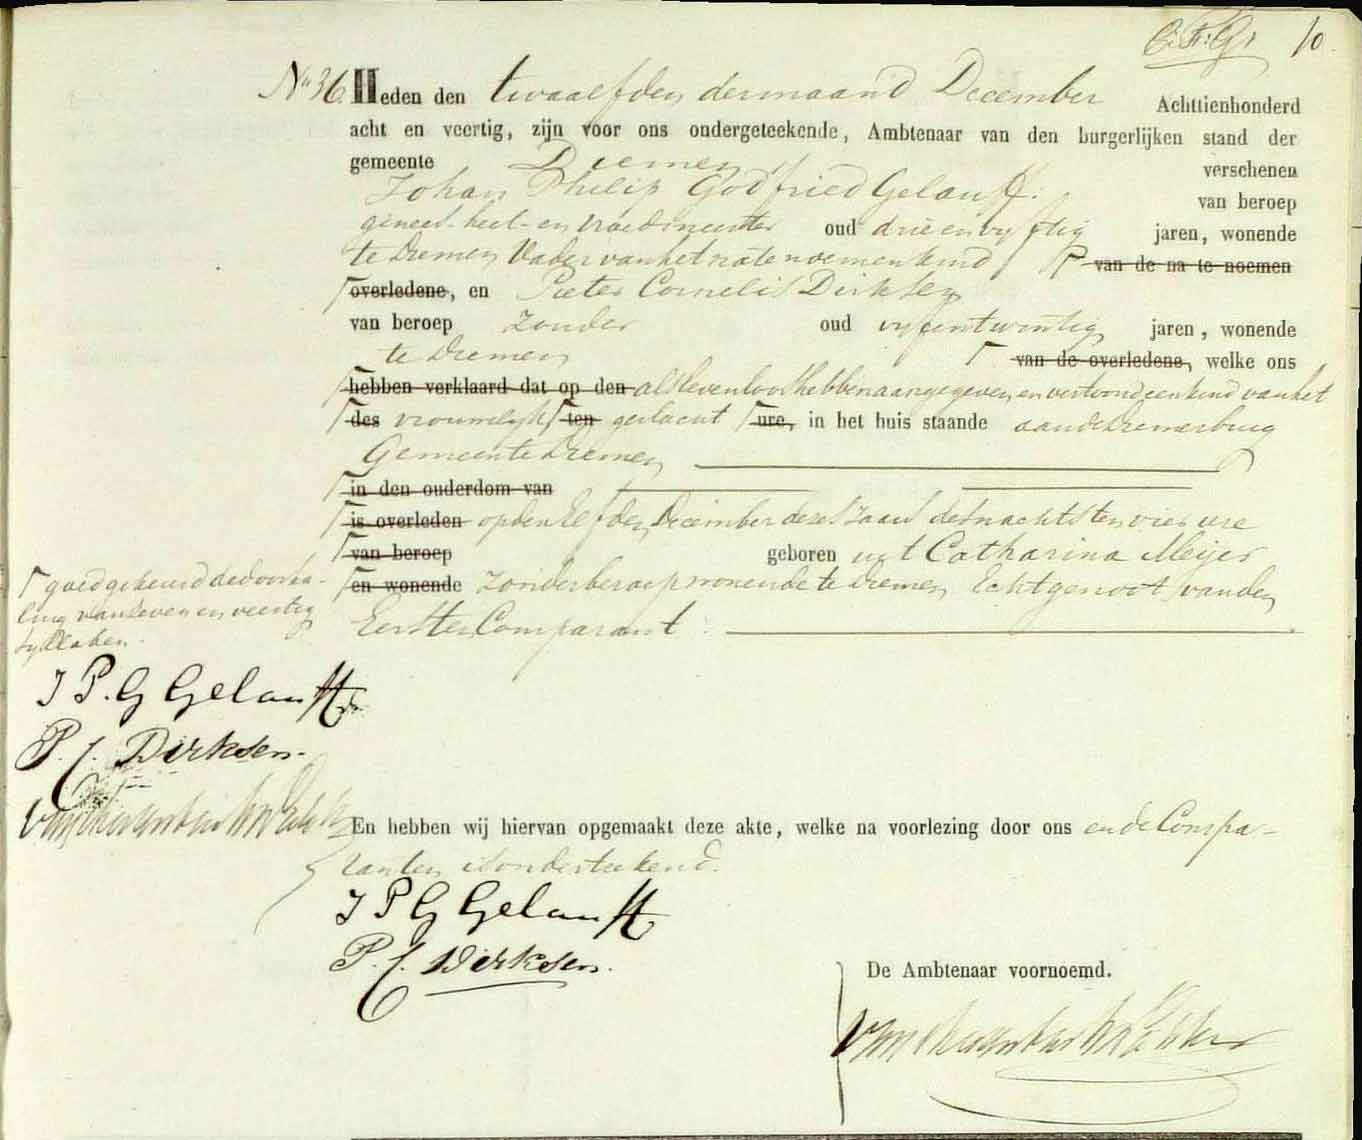 10
No 36. Heden den twaalfden der maand December Achttienhonderd
acht en veertig, zijn voor ons ondergeteekende, Ambtenaar van den burgerlijken stand der
gemeente Diemen verschenen
Johan Philip Godfried Gelauff. van beroep
genees- heel- en vroedmeester oud drie en vyftig jaren, wonende
te Diemen Vader van het nate noemen kind van de na te noemen
overledene, en Pieter Cornelis Dirksen
van beroep zonder oud vyfentwintig jaren, wonende
te Diemen van de overledene, welke ons
hebben verklaard dat op den als levenloos hebben aangegeven en vertoond een kind van het
des vrouwelyk ten geslacht ure, in het huis staande aan de Diemerbrug
Gemeente Diemen
in den ouderdom van
is overleden op den Elfden December dezes Jaars des nachts ten vier ure
van beroep geboren uyt Catharina Meijer
en wonende zonder beroep wonende te Diemen Echtgenoot van den
Eersten Comparant.
goedgekeurd de doorha-
ling van zeven en veertig
syllaben.
J P. G Gelauff
P. C. Dirksen.
En hebben wij hiervan opgemaakt deze akte, welke na voorlezing door ons en de Compa-
ranten is ondertekend.
J P G Gelauff
P. C. Dirksen.
De Ambtenaar voornoemd.